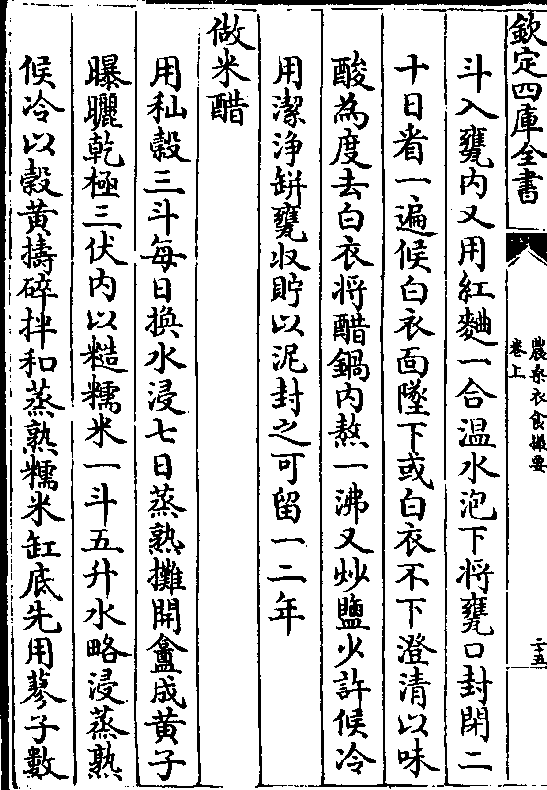 欽定四庫全書
農桑衣食撮要
卷上
二十五
斗入甕内又用紅麯一合温水泡下將甕口封閉二
十日看一遍候白衣面墜下或白衣不下澄清以味
酸為度去白衣將醋鍋内熬一沸又炒鹽少許候冷
用潔浄缾甕收貯以泥封之可留一二年
做米醋
用秈榖三斗每日換水浸七日蒸熟攤開盦成黄子
曝曬乾極三伏内以糙糯米一斗五升水略浸蒸熟
候冷以榖黄擣碎拌和蒸熟糯米缸底先用蓼子數